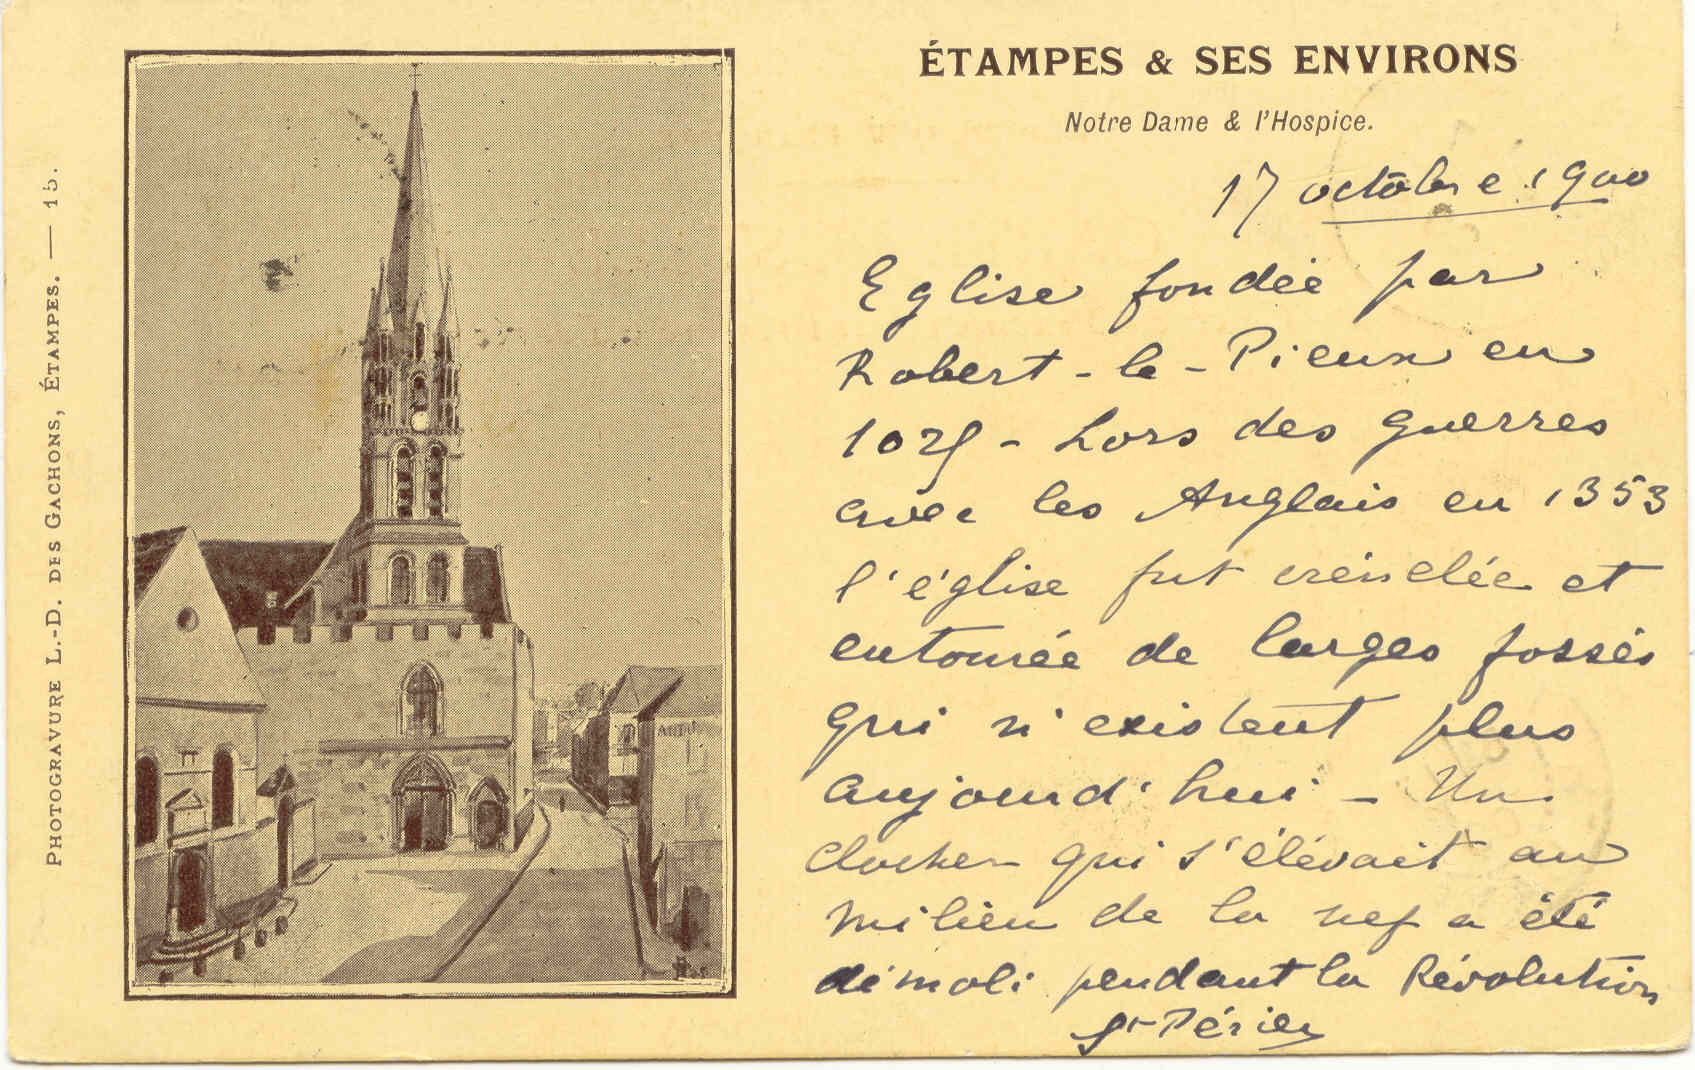 ÉTAMPES & SES ENVIRONS
Notre Dame & l'Hospice.
17 octobre 1900
Eglise fondée par
Robert-le-Pieux en
1025 - Lors des guerres
avec les Anglais en 1353
l'église fut crénelée et
entourée de larges fossés
qui n'existent plus
aujourd'hui - Un
clocher qui s'élévait au
milieu de la nef a été
démoli pendant la Révolution
St Périer
PHOTOGRAVURE L.-D. DES GACHONS, ÉTAMPES. — 15.